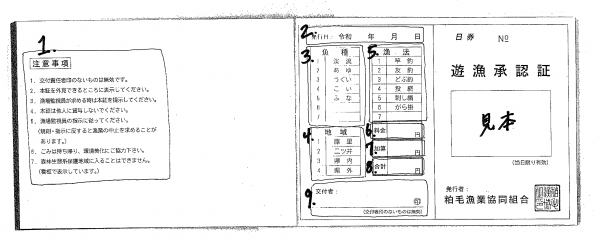 1.
注意事項
1．交付責任者印のないものは無効です。
2．本証を外見できるところに表示してください。
3．漁場監視員が求める時は本証を提示してください。
4．本証は他人に貸与しないでください。
5．漁場監視員の指示に従ってください。
（規則・指示に反すると漁業の中止を求めることが
あります。）
6．ごみは持ち帰り、環境美化にご協力下さい。
7．
（看板で表示しています。）
2.
発行日：令和 年 月 日
3.
魚種
1 渓流
2 あゆ
3 うぐい
4 こい
5 ふな
6
7
4.
地域
1 藤里
2 二ツ井
3 県内
4 県外
5.
漁法
1 竿釣
2 友釣
3 どぶ釣
4 投網
5 刺し網
6 がら掛
7
6.
料金 円
7.
加算 円
8.
合計 円
9.
交付者： 印
（交付者付のないものは無効）
日券 №
遊漁承認証
見本
（当日限り有効）
発行者：
粕毛漁業協同組合